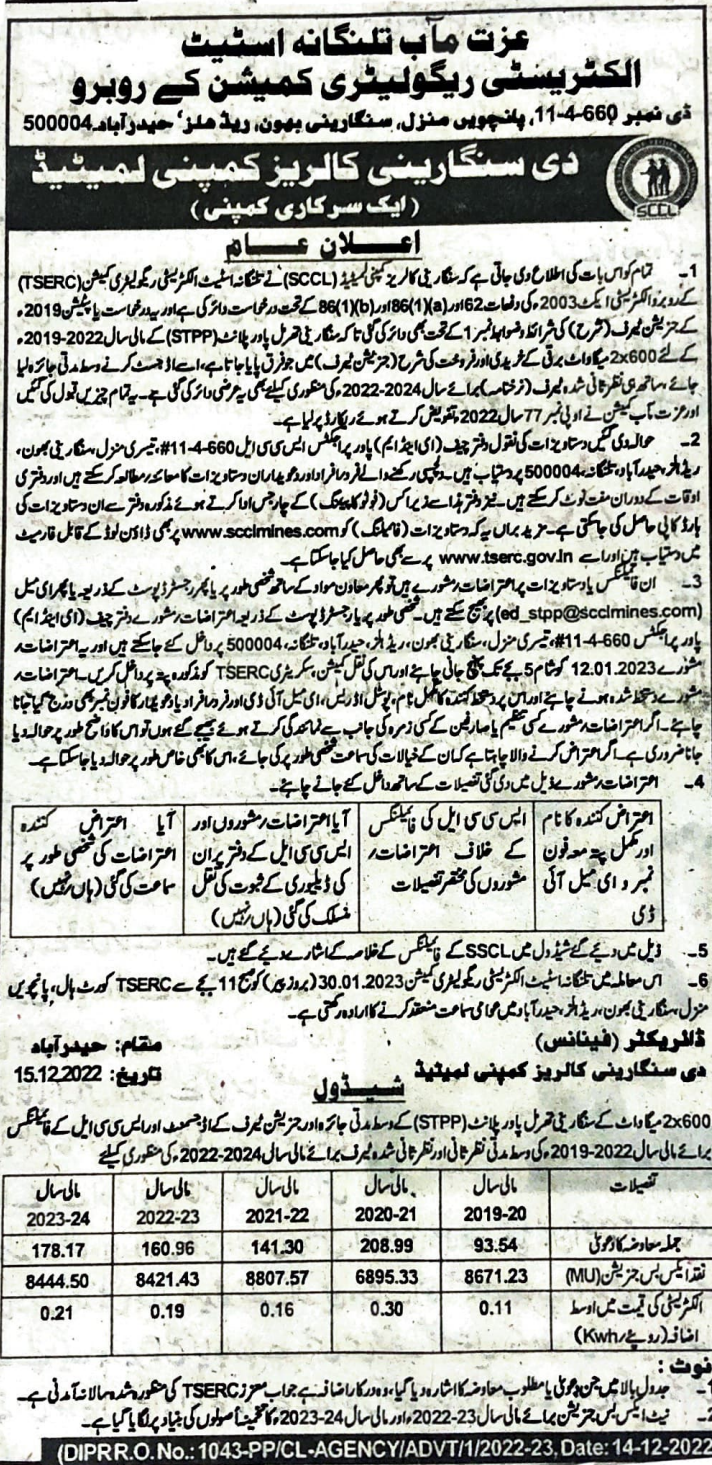 عزت مآب تلنگانہ اسٹیٹ
الکٹریسٹی ریگولیٹری کمیشن کے روبرو
ڈی نمبر 660-4-11، پانچویں منزل، سنگارینی بھون، ریڈ ہلز، حیدرآباد۔500004
دی سنگارینی کالریز کمپنی لمیٹیڈ
(ایک سرکاری کمپنی)
SCCL
اعــلان عــام
1۔ تمام کو اس بات کی اطلاع دی جاتی ہے کہ سنگارینی کالریز کمپنی لمیٹیڈ (SCCL) نے تلنگانہ اسٹیٹ الکٹریسٹی ریگولیٹری کمیشن (TSERC)
کے روبرو الکٹریسٹی ایکٹ 2003ء کی دفعات 62 اور 86(1)(a) اور 86(1)(b) کے تحت درخواست دائر کی ہے اور یہ درخواست یا پٹیشن 2019ء
کے جنریشن ٹیرف (شرح) کی شرائط و ضوابط نمبر 1 کے تحت بھی دائر کی گئی تاکہ سنگارینی تھرمل پاور پلانٹ (STPP) کے مالی سال 2022-2019ء
کے لئے 2x600 میگاواٹ برقی کے خریدی اور فروخت کی شرح (جنریشن ٹیرف) میں جو فرق پایا جاتا ہے، اسے اڈجسٹ کرنے وسط مدتی جائزہ لیا
جائے، ساتھ ہی نظر ثانی شدہ ٹیرف (نرخنامہ) برائے سال 2024-2022ء کی منظوری کیلئے بھی یہ عرضی دائر کی گئی ہے۔ یہ تمام چیزیں قبول کی گئیں
اور عزت مآب کمیشن نے او پی نمبر 77 سال 2022ء تفویض کرتے ہوئے ریکارڈ پر لیا ہے۔
2۔ حوالہ دی گئیں دستاویزات کی نقول دفتر چیف (ای اینڈ ایم) پاور پراجکٹس ایس سی سی ایل 660-4-11#، تیسری منزل، سنگارینی بھون،
ریڈ ہلز، حیدرآباد، تلنگانہ، 500004 پر دستیاب ہیں۔ دلچسپی رکھنے والے فرد/افراد اور دعویداران دستاویزات کا معائنہ/مطالعہ کرسکتے ہیں اور دفتری
اوقات کے دوران مفت نوٹ کرسکتے ہیں۔ نیز دفتر ہذا سے زیراکس (فوٹو کاپینگ) کے چارجس ادا کرتے ہوئے مذکورہ دفتر سے ان دستاویزات کی
ہارڈ کاپی حاصل کی جاسکتی ہے۔ مزید براں یہ کہ دستاویزات (فائیلنگ) کو www.scclmines.com پر بھی ڈاؤن لوڈ کے قابل فارمیٹ
میں دستیاب ہیں اور اسے www.tserc.gov.in پر سے بھی حاصل کیا جاسکتا ہے۔
3۔ ان فائیلنگس یا دستاویزات پر اعتراضات/مشورے ہیں تو پھر معاون مواد کے ساتھ شخصی طور پر یا پھر رجسٹرڈ پوسٹ کے ذریعہ یا پھر ای میل
(ed_stpp@scclmines.com) پر بھیج سکتے ہیں۔ شخصی طور پر یا رجسٹرڈ پوسٹ کے ذریعہ اعتراضات/مشورے دفتر چیف (ای اینڈ ایم)
پاور پراجکٹس 660-4-11#، تیسری منزل، سنگارینی بھون، ریڈ ہلز، حیدرآباد، تلنگانہ، 500004 پر داخل کئے جاسکتے ہیں اور یہ اعتراضات/
مشورے 12.01.2023 کو شام 5 بجے تک پہنچ جانی چاہئے اور اس کی نقل کمیشن، سکریٹری TSERC کو مذکورہ پتہ پر داخل کریں۔ اعتراضات/
مشورے دستخط شدہ ہونے چاہئے اور اس پر دستخط کنندہ کا مکمل نام، پوسٹل اڈریس، ای میل آئی ڈی اور فرد/افراد یا دعویدار کا فون نمبر بھی درج کیا جانا
چاہئے۔ اگر اعتراضات/مشورے کسی تنظیم یا صارفین کے کسی زمرہ کی جانب سے نمائندگی کرتے ہوئے بھیجے گئے ہوں تو اس کا واضح طور پر حوالہ دیا
جانا ضروری ہے۔ اگر اعتراض کرنے والا چاہتا ہے کہ ان کے خیالات کی سماعت شخصی طور پر کی جائے، اس کا بھی خاص طور پر حوالہ دیا جاسکتا ہے۔
4۔ اعتراضات/مشورے ذیل میں دی گئی تفصیلات کے ساتھ داخل کئے جانے چاہئے۔
اعتراض کنندہ کا نام اور مکمل پتہ معہ فون نمبر و ای میل آئی ڈی
ایس سی سی ایل کی فائیلنگس کے خلاف اعتراضات/مشوروں کی مختصر تفصیلات
آیا اعتراضات/مشوروں اور ایس سی سی ایل کے دفتر پر ان کی ڈیلیوری کے ثبوت کی نقل منسلک کی گئی (ہاں/نہیں)
آیا اعتراض کنندہ اعتراضات کی شخصی طور پر سماعت کی گئی (ہاں/نہیں)
5۔ ذیل میں دیئے گئے شیڈول میں SSCL کے فائیلنگس کے خلاصہ کے اشارے دیئے گئے ہیں۔
6۔ اس معاملہ میں تلنگانہ اسٹیٹ الکٹریسٹی ریگولیٹری کمیشن 30.01.2023 (بروز پیر) کو صبح 11 بجے سے TSERC کورٹ ہال، پانچویں
منزل، سنگارینی بھون، ریڈ ہلز، حیدرآباد میں عوامی سماعت منعقد کرنے کا ارادہ رکھتی ہے۔
ڈائریکٹر (فینانس)
دی سنگارینی کالریز کمپنی لمیٹیڈ
مقام: حیدرآباد
تاریخ: 15.12.2022
شیڈول
2x600 میگاواٹ کے سنگارینی تھرمل پاور پلانٹ (STPP) کے وسط مدتی جائزہ اور جنریشن ٹیرف کے اڈجسمنٹ اور ایس سی سی ایل کے فائیلنگس
برائے مالی سال 2022-2019ء کی وسط مدتی نظر ثانی اور نظر ثانی شدہ ٹیرف برائے مالی سال 2024-2022ء کی منظوری کیلئے
تفصیلات مالی سال 2019-20 مالی سال 2020-21 مالی سال 2021-22 مالی سال 2022-23 مالی سال 2023-24
جملہ معاوضہ کا دعویٰ 93.54 208.99 141.30 160.96 178.17
نقد ایکس بس جنریشن (MU) 8671.23 6895.33 8807.57 8421.43 8444.50
الکٹریسٹی کی قیمت میں اوسط اضافہ (روپئے/Kwh) 0.11 0.30 0.16 0.19 0.21
نوٹ:
1۔ جدول بالا میں جن دعویٰ یا مطلوب معاوضہ کا اشارہ دیا گیا، وہ درکار اضافہ ہے جو اب معزز TSERC کی منظورہ شدہ سالانہ آمدنی ہے۔
2۔ نیٹ ایکس بس جنریشن برائے مالی سال 2022-23ء اور مالی سال 2023-24ء کا تخمینہ اصولوں کی بنیاد پر لگایا گیا ہے۔
(DIPR R.O. No.: 1043-PP/CL-AGENCY/ADVT/1/2022-23, Date: 14-12-2022